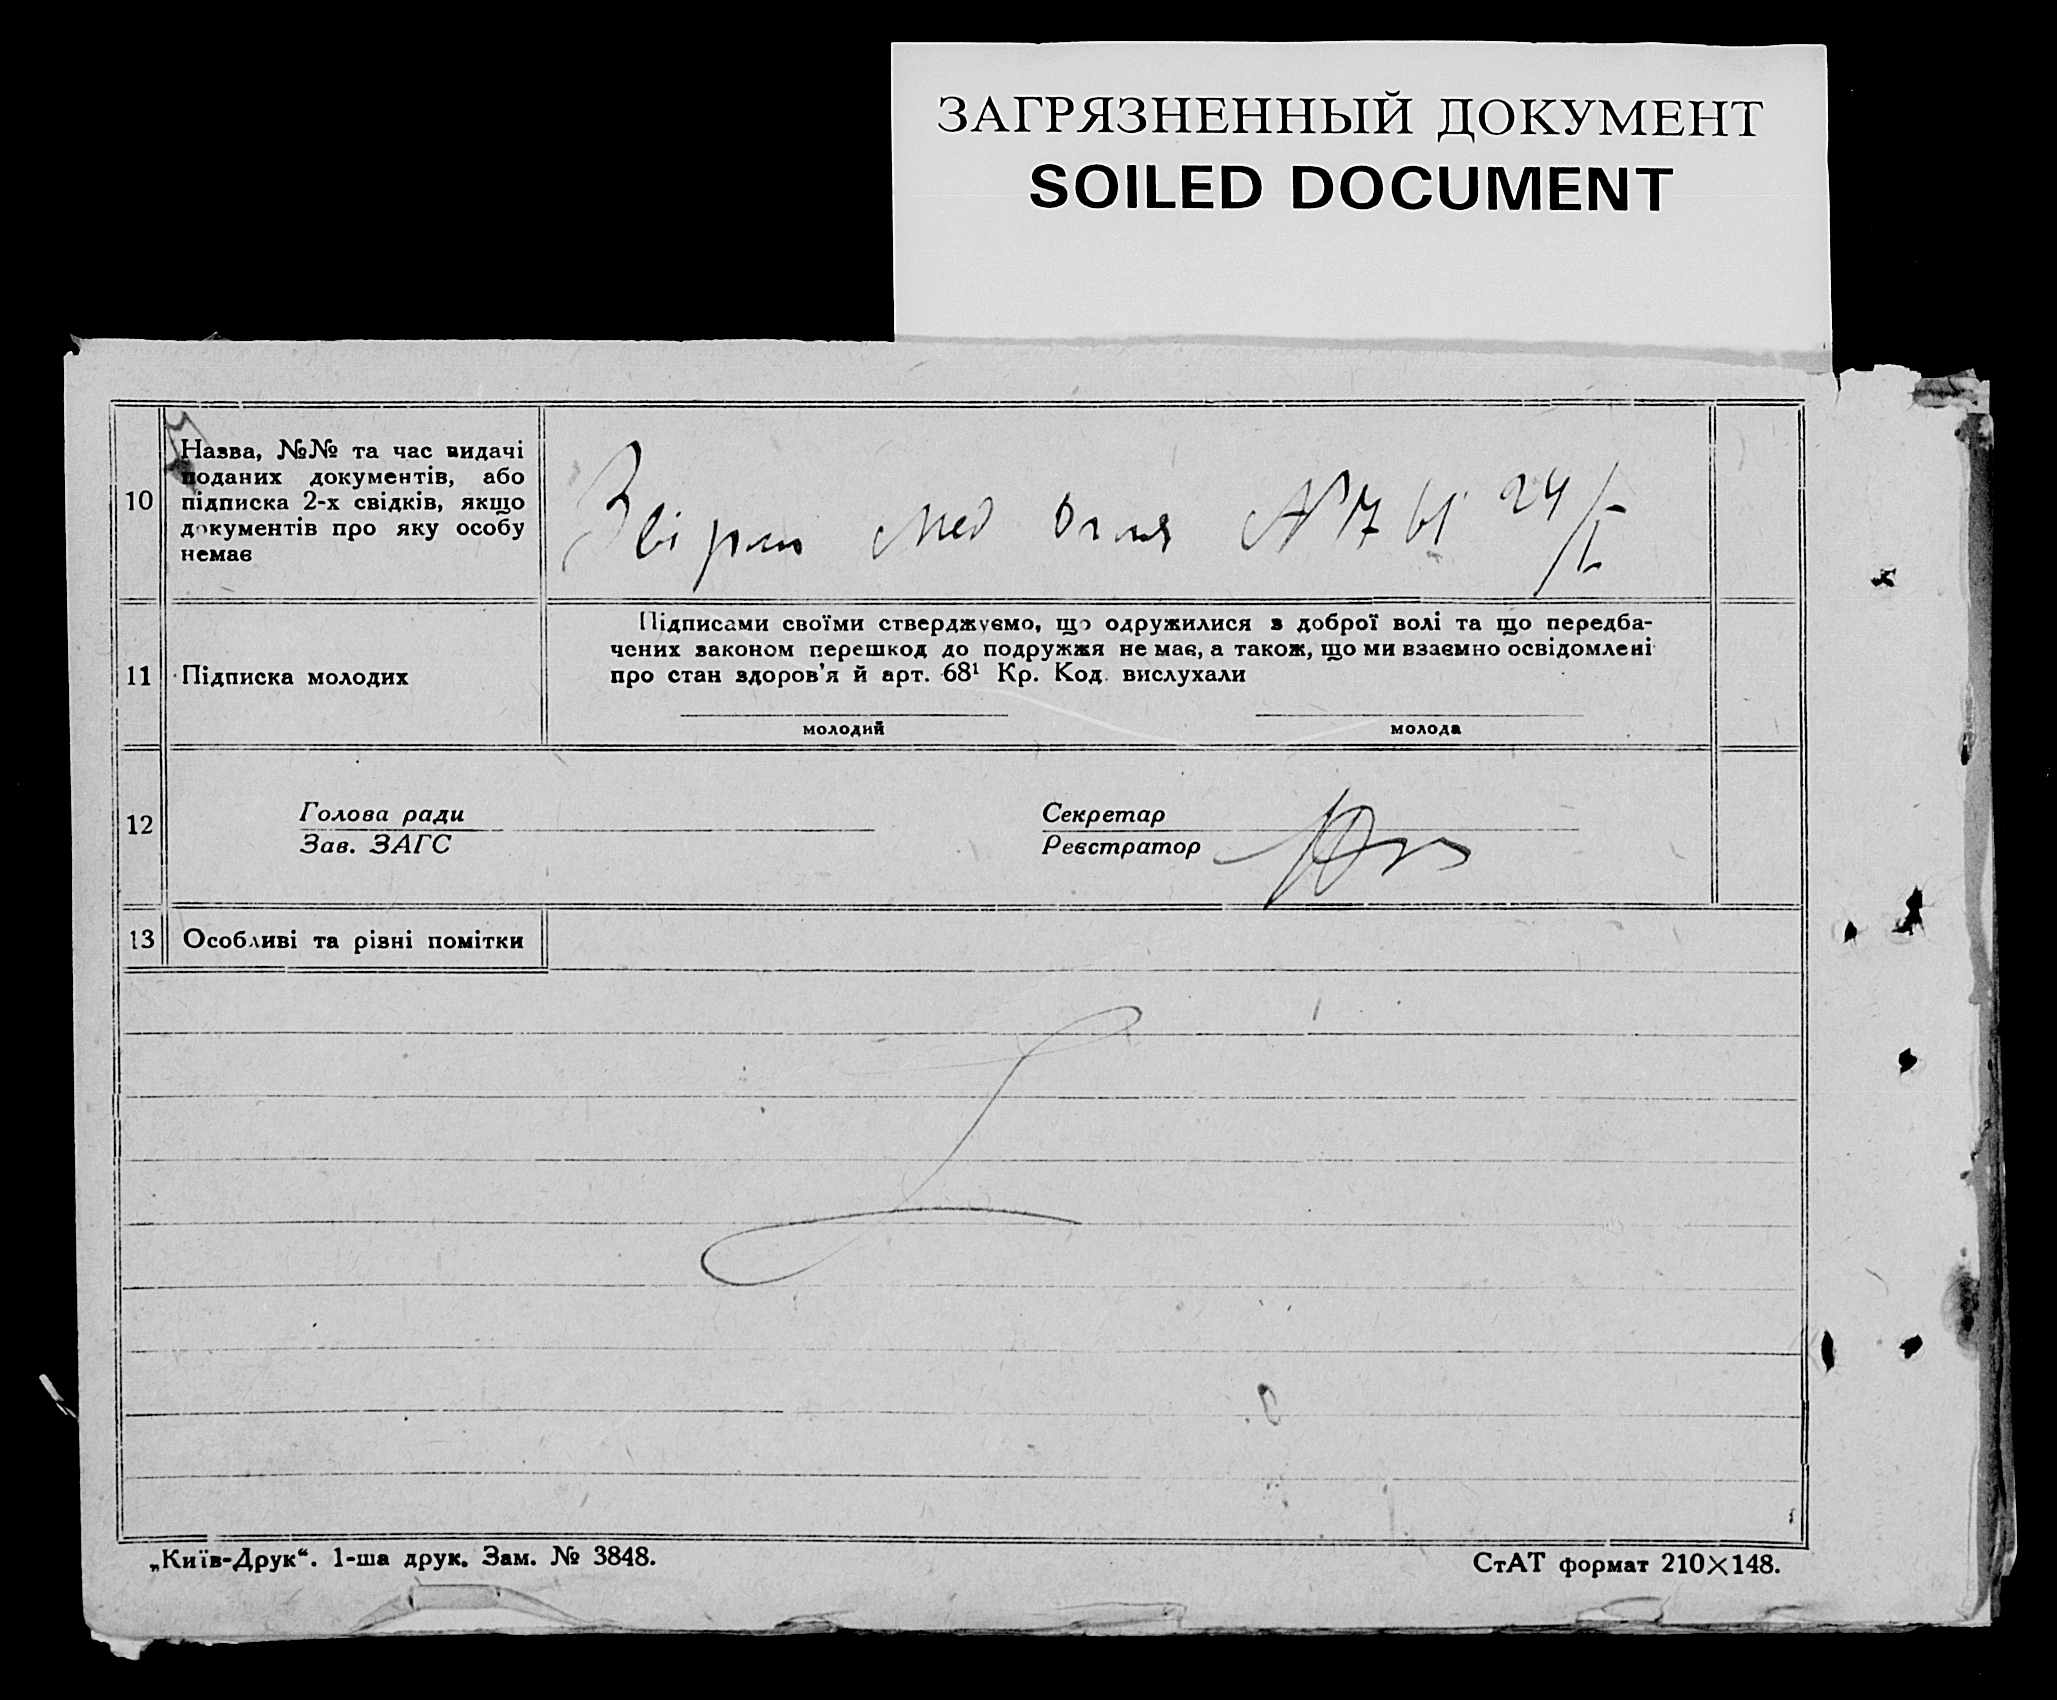 ЗАГРЯЗНЕННЫЙ ДОКУМЕНТ
SOILED DOCUMENT
10
Назва, №№ та час видачі
поданих документів, або
підписка 2-х свідків, якщо
документів про яку особу
немає
Мед № 24/I
11
Підписка молодих
Підписами своїми стверджуємо, що одружилися з доброї волі та що передба-
чених законом перешкод до подружжя не має, а також, що ми взаємно освідомлені
про стан здоров'я й арт. 68¹ Кр. Код. вислухали
молодий
молода
12
Голова ради
Зав. ЗАГС
Секретар
Реєстратор
13
Особливі та різні помітки
„Київ-Друк“. 1-ша друк. Зам. № 3848.
СтАТ формат 210×148.